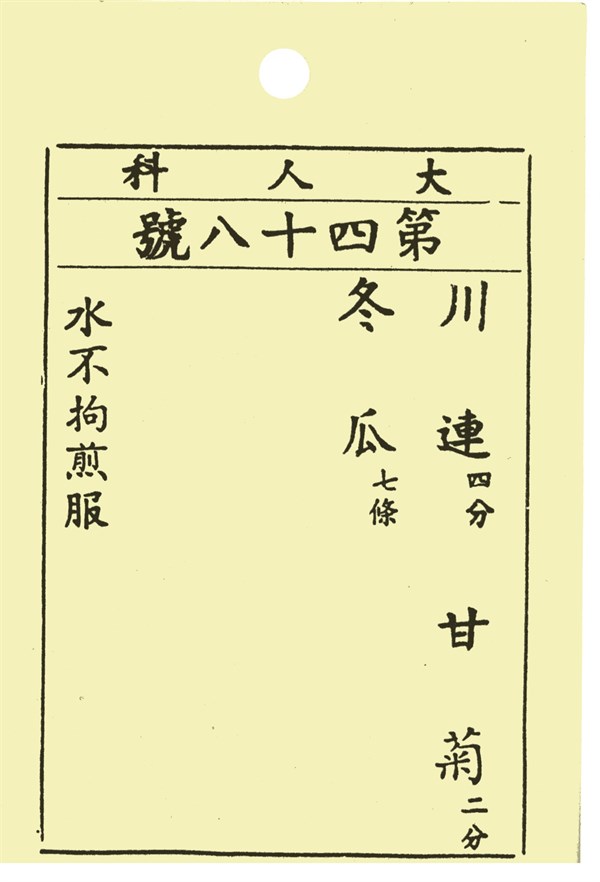 大人科
第四十八號
川連四分 甘菊二分
冬瓜七條
水不拘煎服